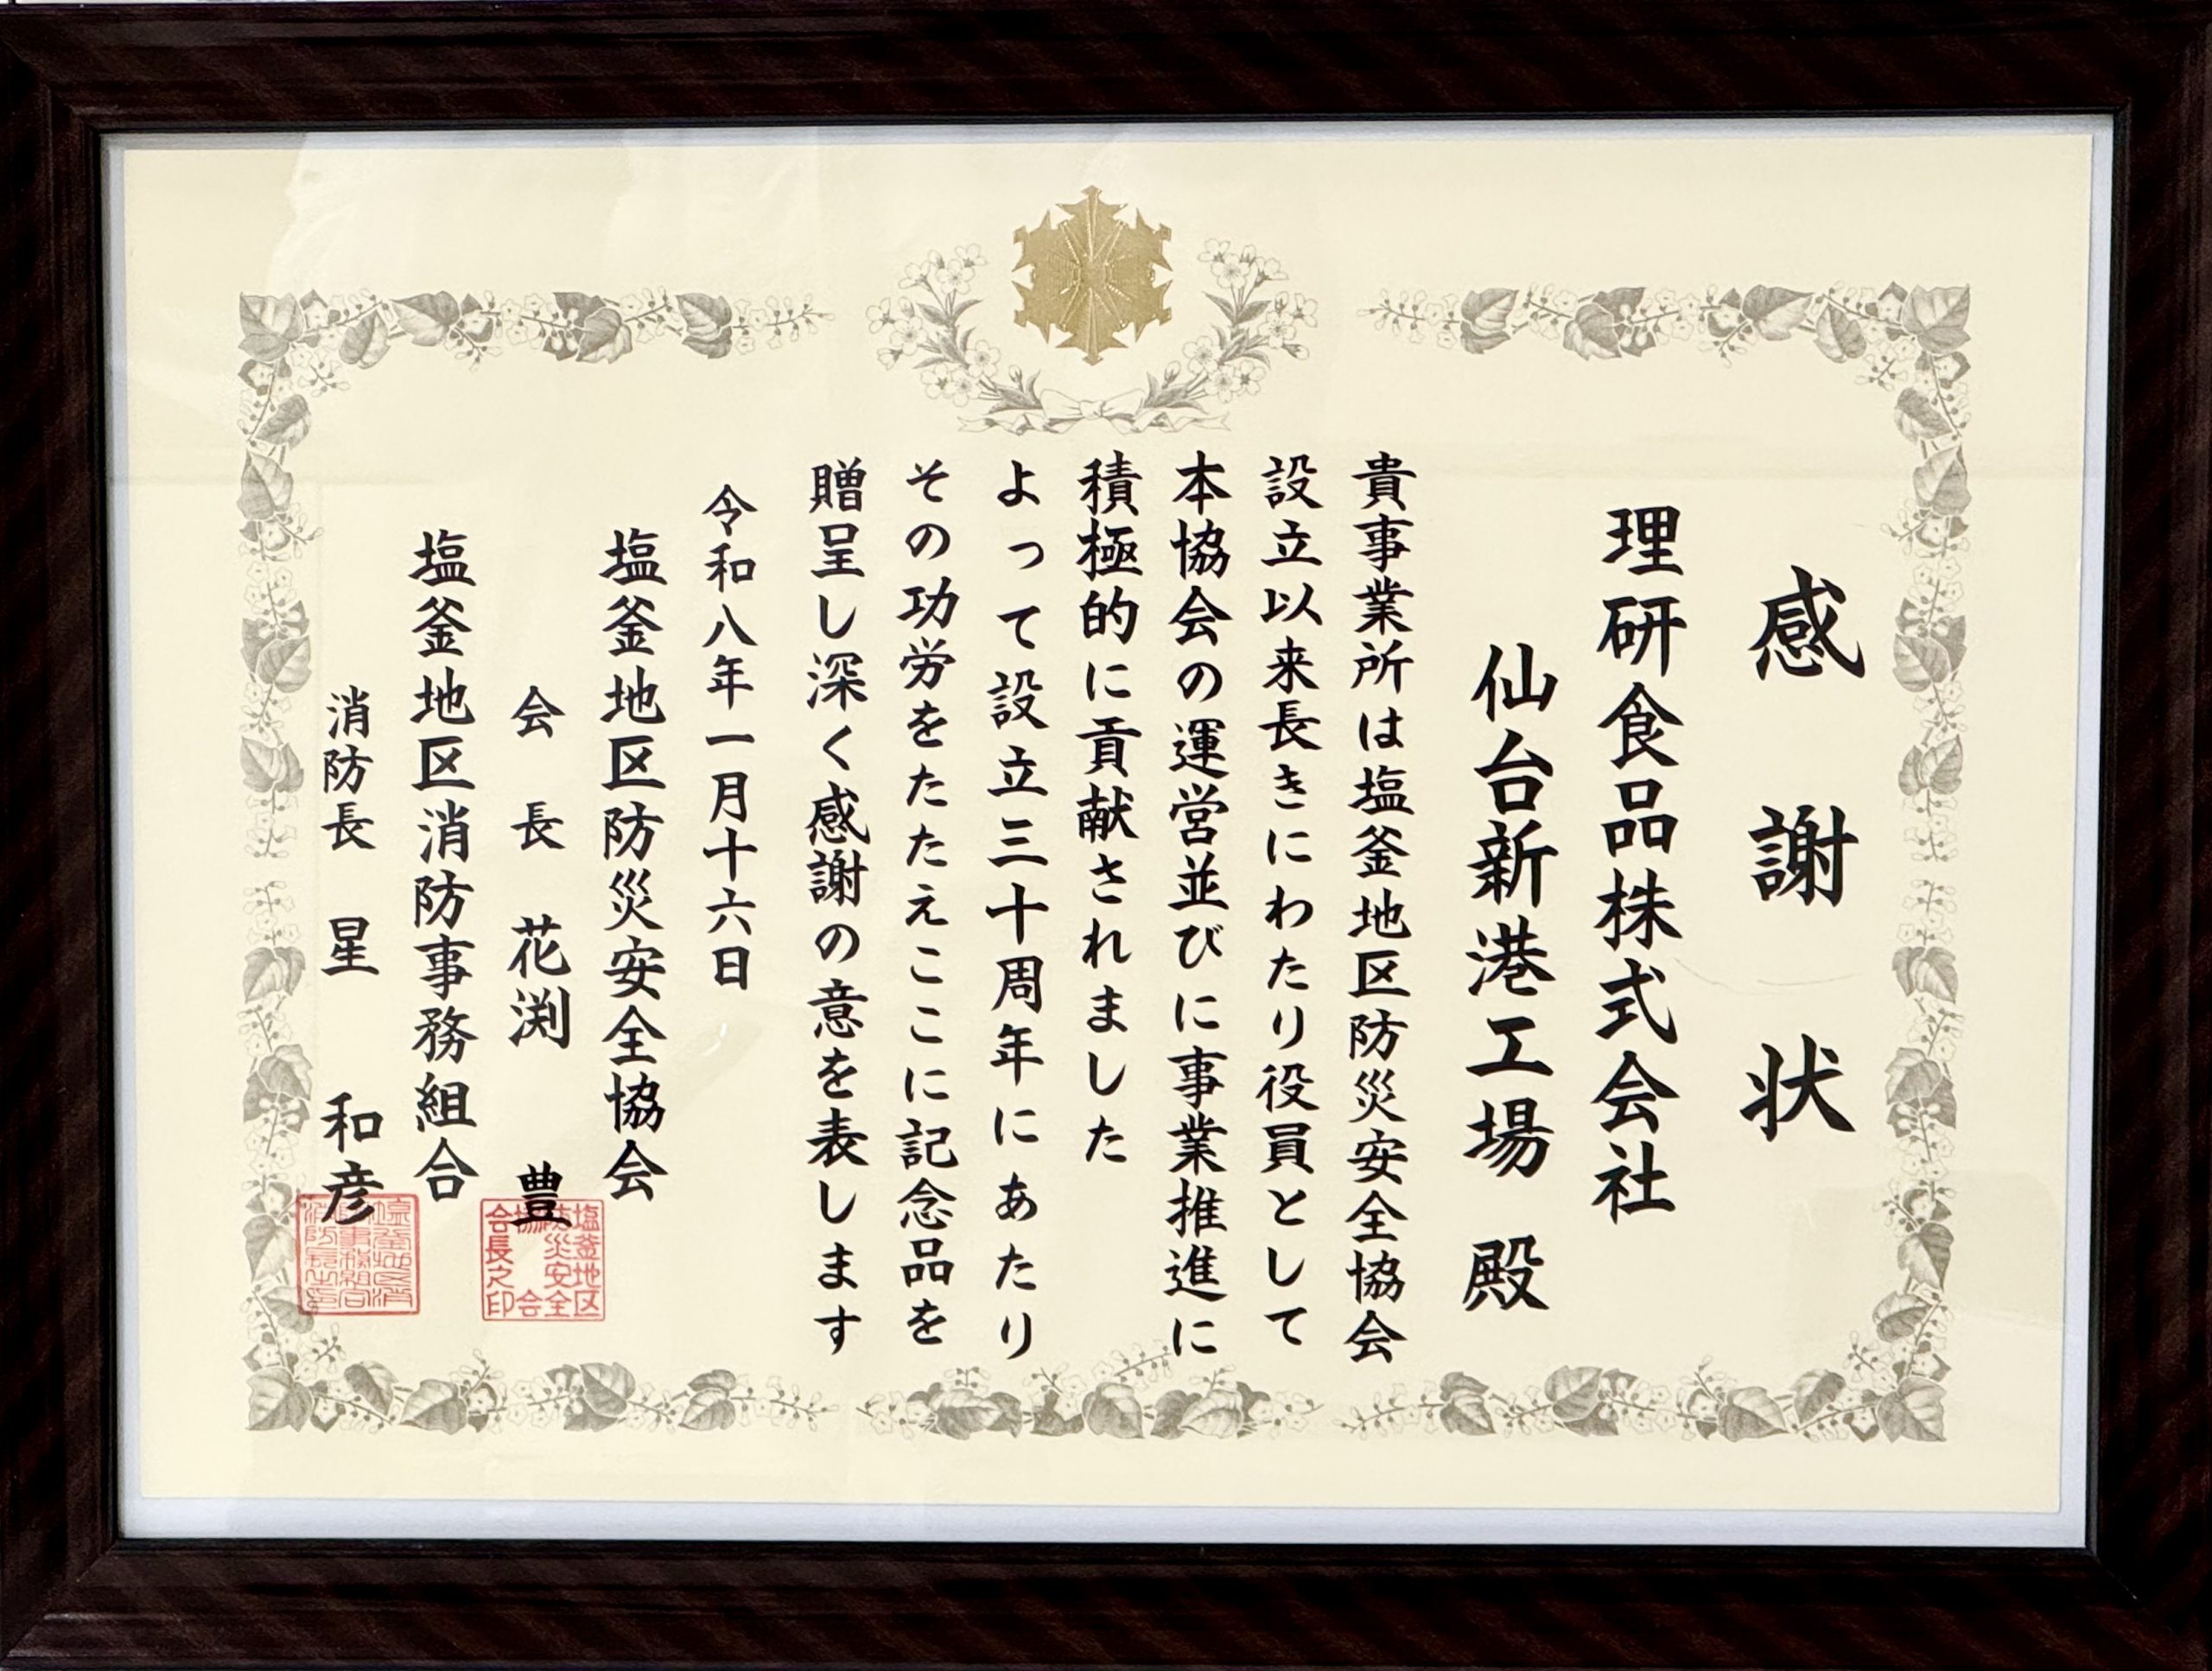 感謝状
理研食品株式会社
仙台新港工場 殿
貴事業所は塩釜地区防災安全協会
設立以来長きにわたり役員として
本協会の運営並びに事業推進に
積極的に貢献されました
よって設立三十周年にあたり
その功労をたたえここに記念品を
贈呈し深く感謝の意を表します
令和八年一月十六日
塩釜地区防災安全協会
会長 花渕 豊
塩釜地区消防事務組合
消防長 星 和彦
塩釜地区
防災安全
協会
会長之印